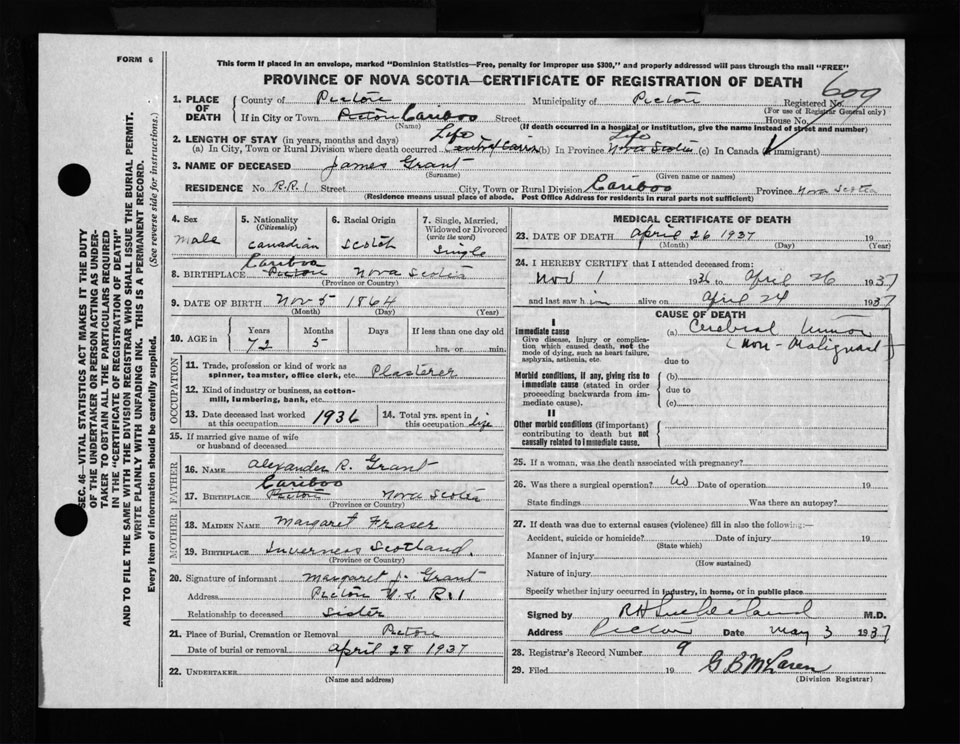 FORM 6
This form if placed in an envelope, marked "Dominion Statistics—Free, penalty for improper use $300," and properly addressed will pass through the mail "FREE"
PROVINCE OF NOVA SCOTIA—CERTIFICATE OF REGISTRATION OF DEATH
609
1. PLACE OF DEATH
County of Pictou Municipality of Pictou Registered No.
(For use of Registrar General only)
If in City or Town Pictou Cariboo Street House No.
(Name) (If death occurred in a hospital or institution, give the name instead of street and number)
2. LENGTH OF STAY (in years, months and days) Life Life
(a) In City, Town or Rural Division where death occurred (b) In Province Nova Scotia (c) In Canada (if immigrant)
3. NAME OF DECEASED James Grant
(Surname) (Given name or names)
RESIDENCE No. R.R. 1 Street City, Town or Rural Division Cariboo Province Nova Scotia
(Residence means usual place of abode. Post Office Address for residents in rural parts not sufficient)
4. Sex
Male
5. Nationality
(Citizenship)
Canadian
6. Racial Origin
Scotch
7. Single, Married, Widowed or Divorced
(write the word)
Single
Cariboo
8. BIRTHPLACE Pictou Nova Scotia
(Province or Country)
9. DATE OF BIRTH Nov 5 1864
(Month) (Day) (Year)
10. AGE in
Years Months Days If less than one day old
72 5 hrs. or min.
OCCUPATION
11. Trade, profession or kind of work as spinner, teamster, office clerk, etc. Plasterer
12. Kind of industry or business, as cotton-mill, lumbering, bank, etc.
13. Date deceased last worked at this occupation 1936
14. Total yrs. spent in this occupation Life
15. If married give name of wife or husband of deceased
FATHER
16. NAME Alexander R. Grant
Cariboo
17. BIRTHPLACE Pictou Nova Scotia
(Province or Country)
MOTHER
18. MAIDEN NAME Margaret Fraser
19. BIRTHPLACE Inverness Scotland.
(Province or Country)
20. Signature of informant Margaret J. Grant
Address Pictou N.S. R.1
Relationship to deceased Sister
21. Place of Burial, Cremation or Removal Pictou
Date of burial or removal April 28 1937
22. UNDERTAKER
(Name and address)
MEDICAL CERTIFICATE OF DEATH
23. DATE OF DEATH April 26 1937 19
(Month) (Day) (Year)
24. I HEREBY CERTIFY that I attended deceased from:
Nov 1 1936 to April 26 1937
and last saw him alive on April 24 1937
CAUSE OF DEATH
I
Immediate cause
Give disease, injury or complication which caused death, not the mode of dying, such as heart failure, asphyxia, asthenia, etc.
(a) Cerebral Tumor
(non-Malignant)
due to
Morbid conditions, if any, giving rise to immediate cause (stated in order proceeding backwards from immediate cause).
(b)
due to
(c)
II
Other morbid conditions (if important) contributing to death but not causally related to immediate cause.
25. If a woman, was the death associated with pregnancy?
26. Was there a surgical operation? no Date of operation 19
State findings Was there an autopsy?
27. If death was due to external causes (violence) fill in also the following:—
Accident, suicide or homicide? Date of injury 19
(State which)
Manner of injury
(How sustained)
Nature of injury
Specify whether injury occurred in industry, in home, or in public place
Signed by M.D.
Address Pictou Date May 3 1937
28. Registrar's Record Number 9
29. Filed 19 G B McLaren
(Division Registrar)
SEC. 46—VITAL STATISTICS ACT MAKES IT THE DUTY
OF THE UNDERTAKER OR PERSON ACTING AS UNDER-
TAKER TO OBTAIN ALL THE PARTICULARS REQUIRED
IN THE "CERTIFICATE OF REGISTRATION OF DEATH"
AND TO FILE THE SAME WITH THE DIVISION REGISTRAR WHO SHALL ISSUE THE BURIAL PERMIT.
WRITE PLAINLY WITH UNFADING INK. THIS IS A PERMANENT RECORD.
Every item of information should be carefully supplied. (See reverse side for instructions.)